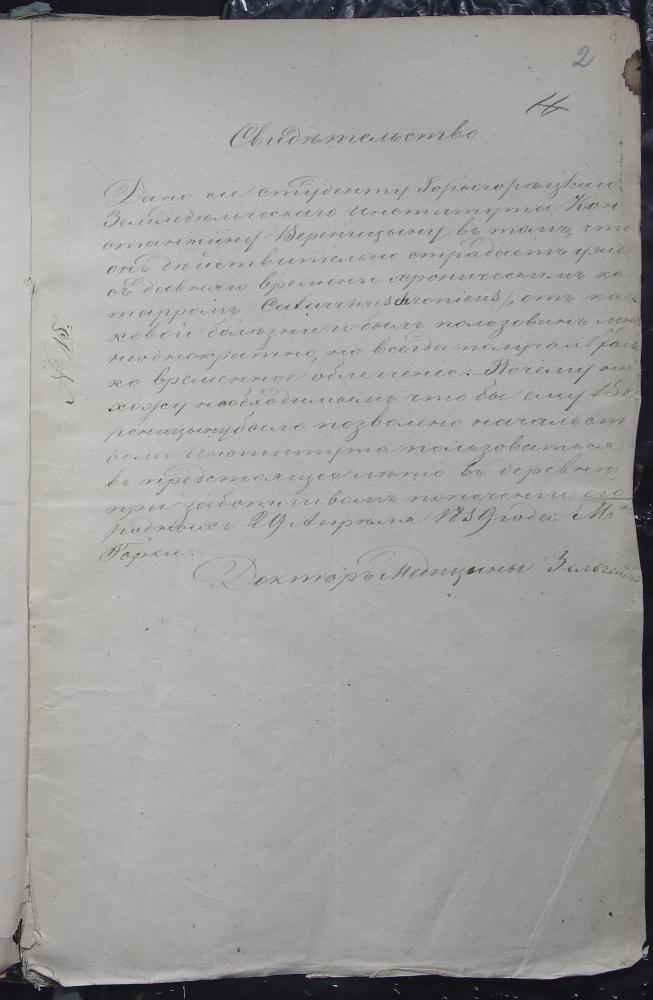 2
4
Свидѣтельство
Дано сіе студенту Горыгорѣцкаго
Земледѣльческаго института Кон
стантину Вереницыну въ томъ, что
онъ дѣйствительно страдаетъ уже
съ давняго времени хроническимъ ка
тарромъ, (catarrhus chronicus), отъ ка
ковой болѣзни и былъ пользованъ мно
неоднократно, но всегда получалъ толь
ко временное облегченіе. Почему на
хожу необходимымъ что бы ему Ве
реницыну было позволено начальст
вомъ института пользоваться
въ предстоящее лѣто въ деревнѣ,
при заботливомъ попеченіи его
родныхъ 29 Апрѣля 1859 года М.
Горки.
Докторъ Медицины
№ 15.